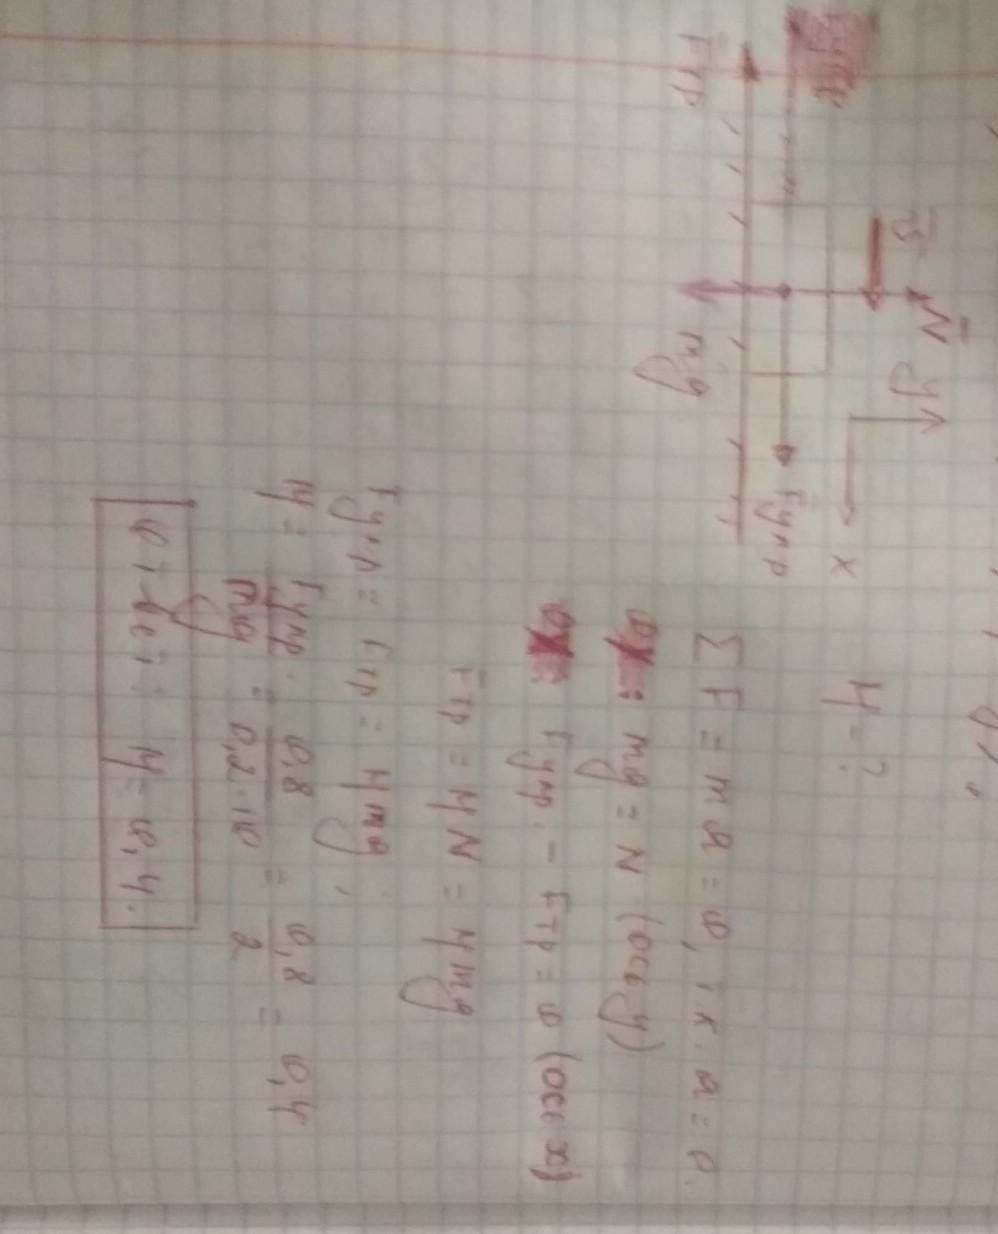 N̄
ῡ
y
x
Fупр
Fтр
mg
μ - ?
∑F = ma = 0, т.к. a = 0.
mg = N (ось y)
Fупр. - Fтр = 0 (ось x)
Fтр = μN = μmg
Fупр = Fтр = μmg,
μ = Fупр. / mg = 0,8 / 0,2·10 = 0,8 / 2 = 0,4
Ответ: μ = 0,4.